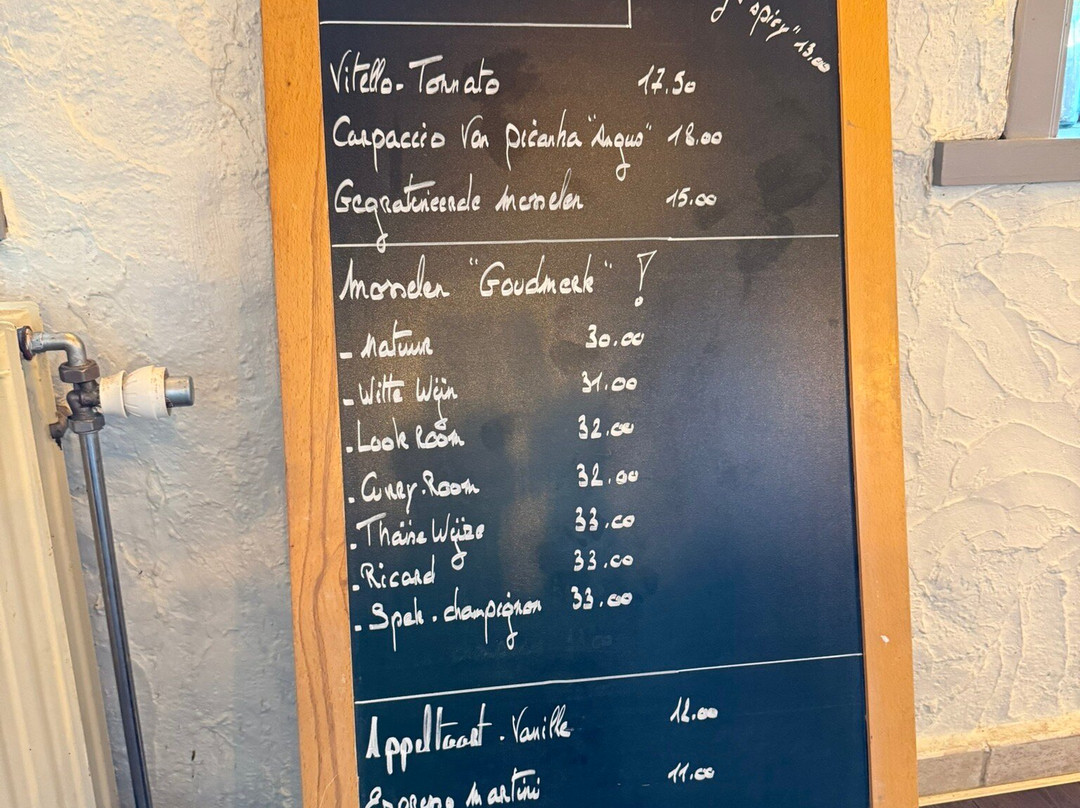 spicy" 13.00
Vitello. Tonnato 17.50
Carpaccio Van picanha "Angus" 18.00
Gegratineerde mosselen 15.00
Mosselen "Goudmerk" !
- Natuur 30.00
- Witte Wijn 31.00
. Look Room 32.00
. Curry. Room 32.00
. Thaïse Wijze 33.00
. Ricard 33.00
- Spek. champignon 33.00
Appeltaart. Vanille 12.00
Espresso martini 11.00